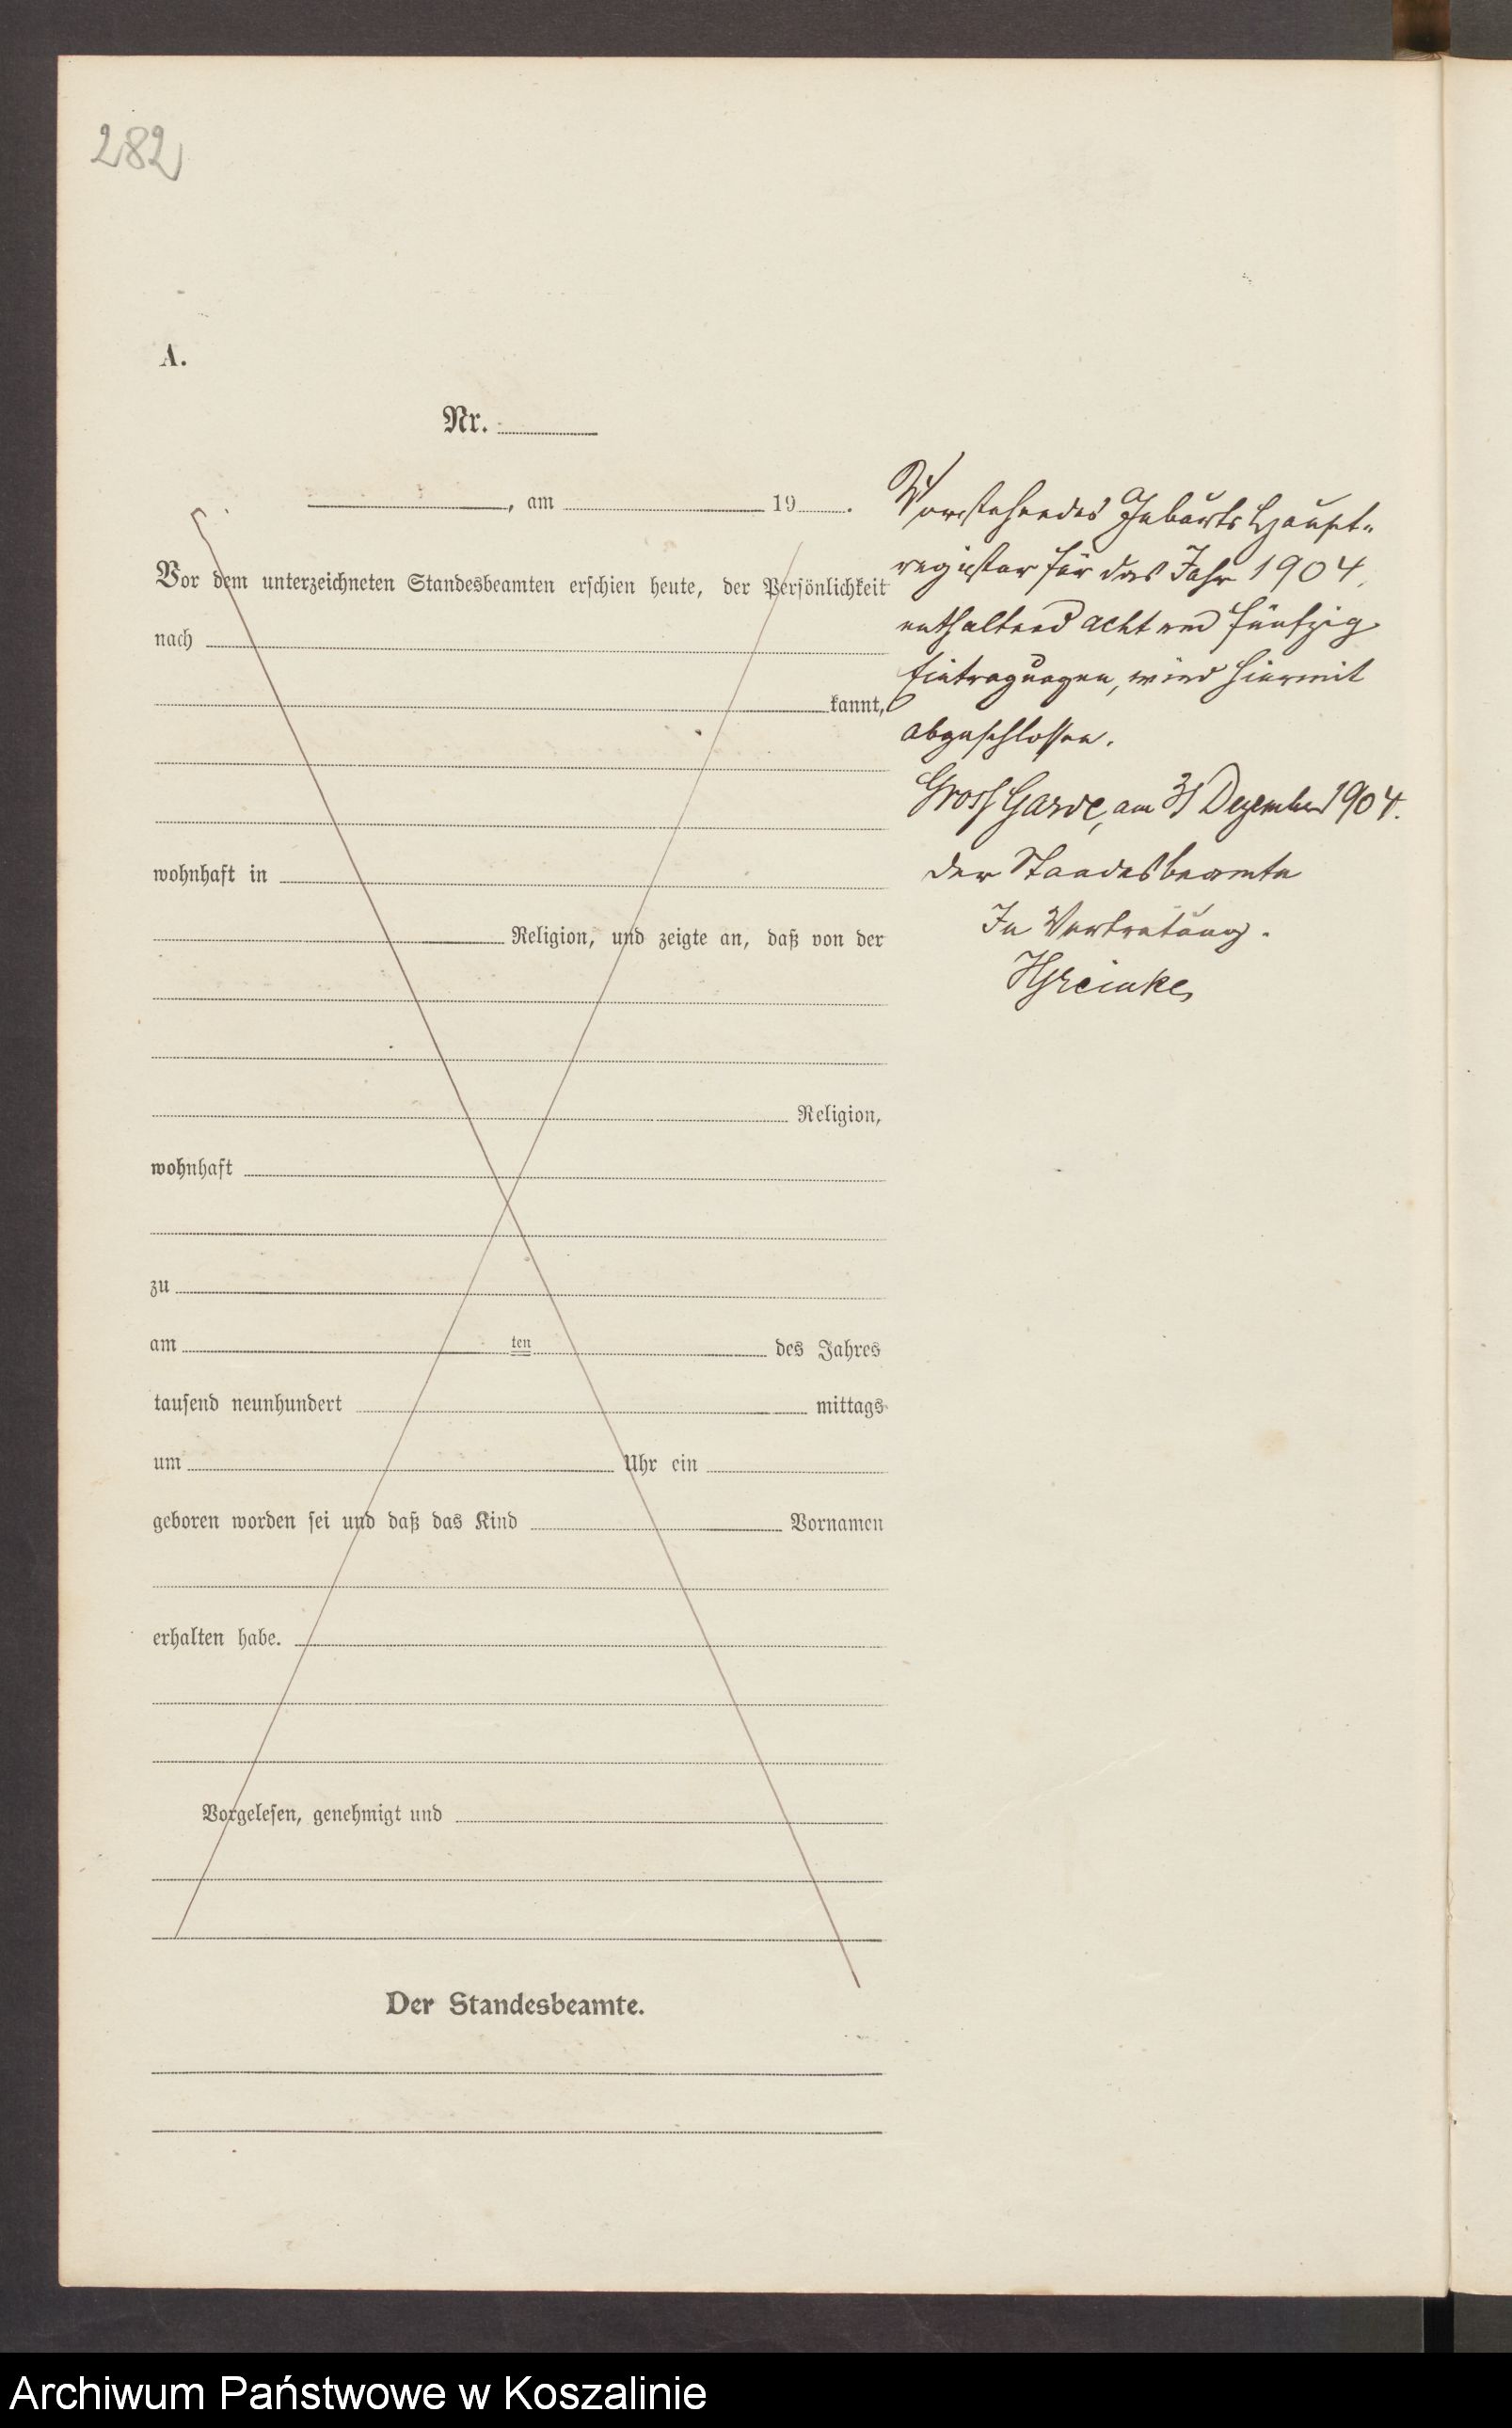 282
A.
Nr.
, am 19 .
Vor dem unterzeichneten Standesbeamten erschien heute, der Persönlichkeit
nach
kannt,
wohnhaft in
Religion, und zeigte an, daß von der
Religion,
wohnhaft
zu
am ten des Jahres
tausend neunhundert mittags
um Uhr ein
geboren worden sei und daß das Kind Vornamen
erhalten habe.
Vorgelesen, genehmigt und
Der Standesbeamte.
Vorstehendes Geburts Haupt-
register für das Jahr 1904,
enthaltend acht und fünfzig
Eintragungen, wird hiermit
abgeschlossen.
Gross Garde, am 31 Dezember 1904.
Der Standesbeamte
In Vertretung.
Archiwum Państwowe w Koszalinie